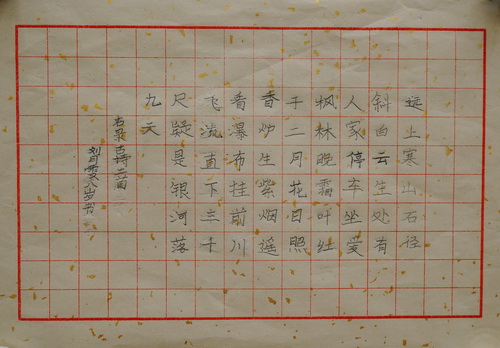 远上寒山石径
斜白云生处有
人家停车坐爱
枫林晚霜叶红
于二月花日照
香炉生紫烟遥
看瀑布挂前川
飞流直下三千
尺疑是银河落
九天
右录古诗二首
八岁书